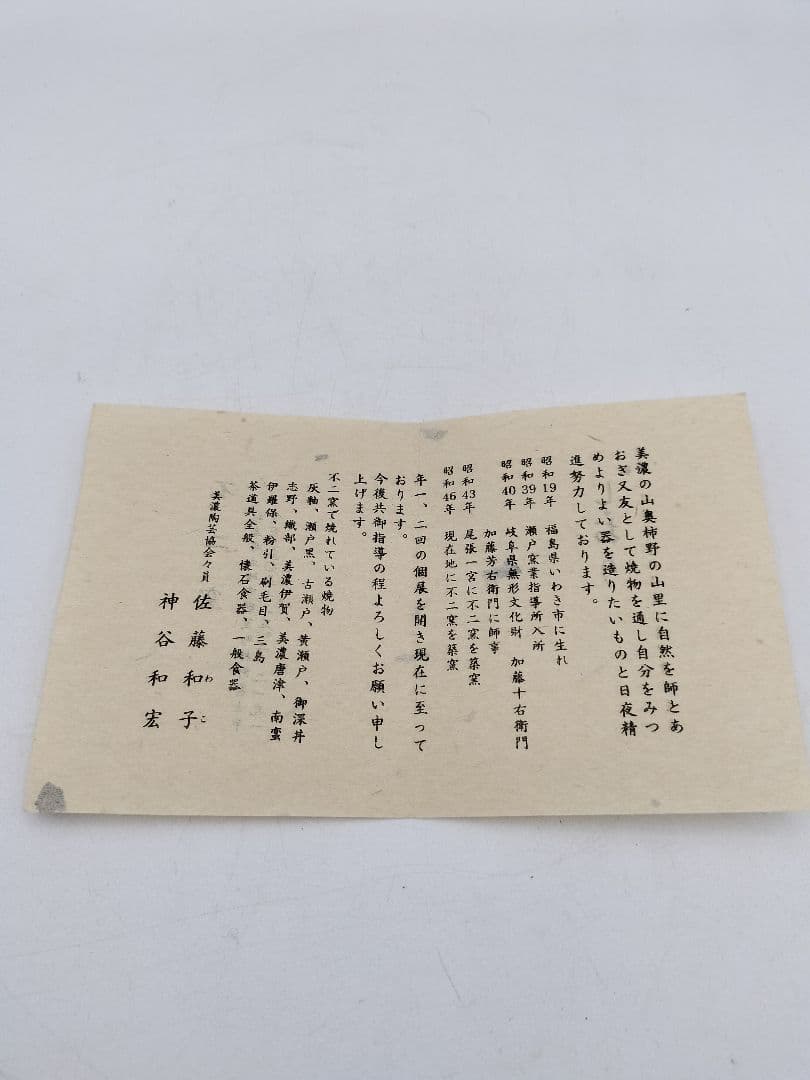 美濃の山奥柿野の山里に自然を師とあ
おぎ又友として焼物を通し自分をみつ
めよりよい器を造りたいものと日夜精
進努力しております。
昭和19年 福島県いわき市に生れ
昭和39年 瀬戸窯業指導所入所
昭和40年 岐阜県無形文化財 加藤十右衛門
加藤芳右衛門に師事
昭和43年 尾張一宮に不二窯を築窯
昭和46年 現在地に不二窯を築窯
年一、二回の個展を開き現在に至って
おります。
今後共御指導の程よろしくお願い申し
上げます。
不二窯で焼れている焼物
灰釉、瀬戸黒、古瀬戸、黄瀬戸、御深井
志野、織部、美濃伊賀、美濃唐津、南蛮
伊羅保、粉引、刷毛目、三島
茶道具全般、懐石食器、一般食器
美濃陶芸協会々員
佐藤和子
わこ
神谷和宏